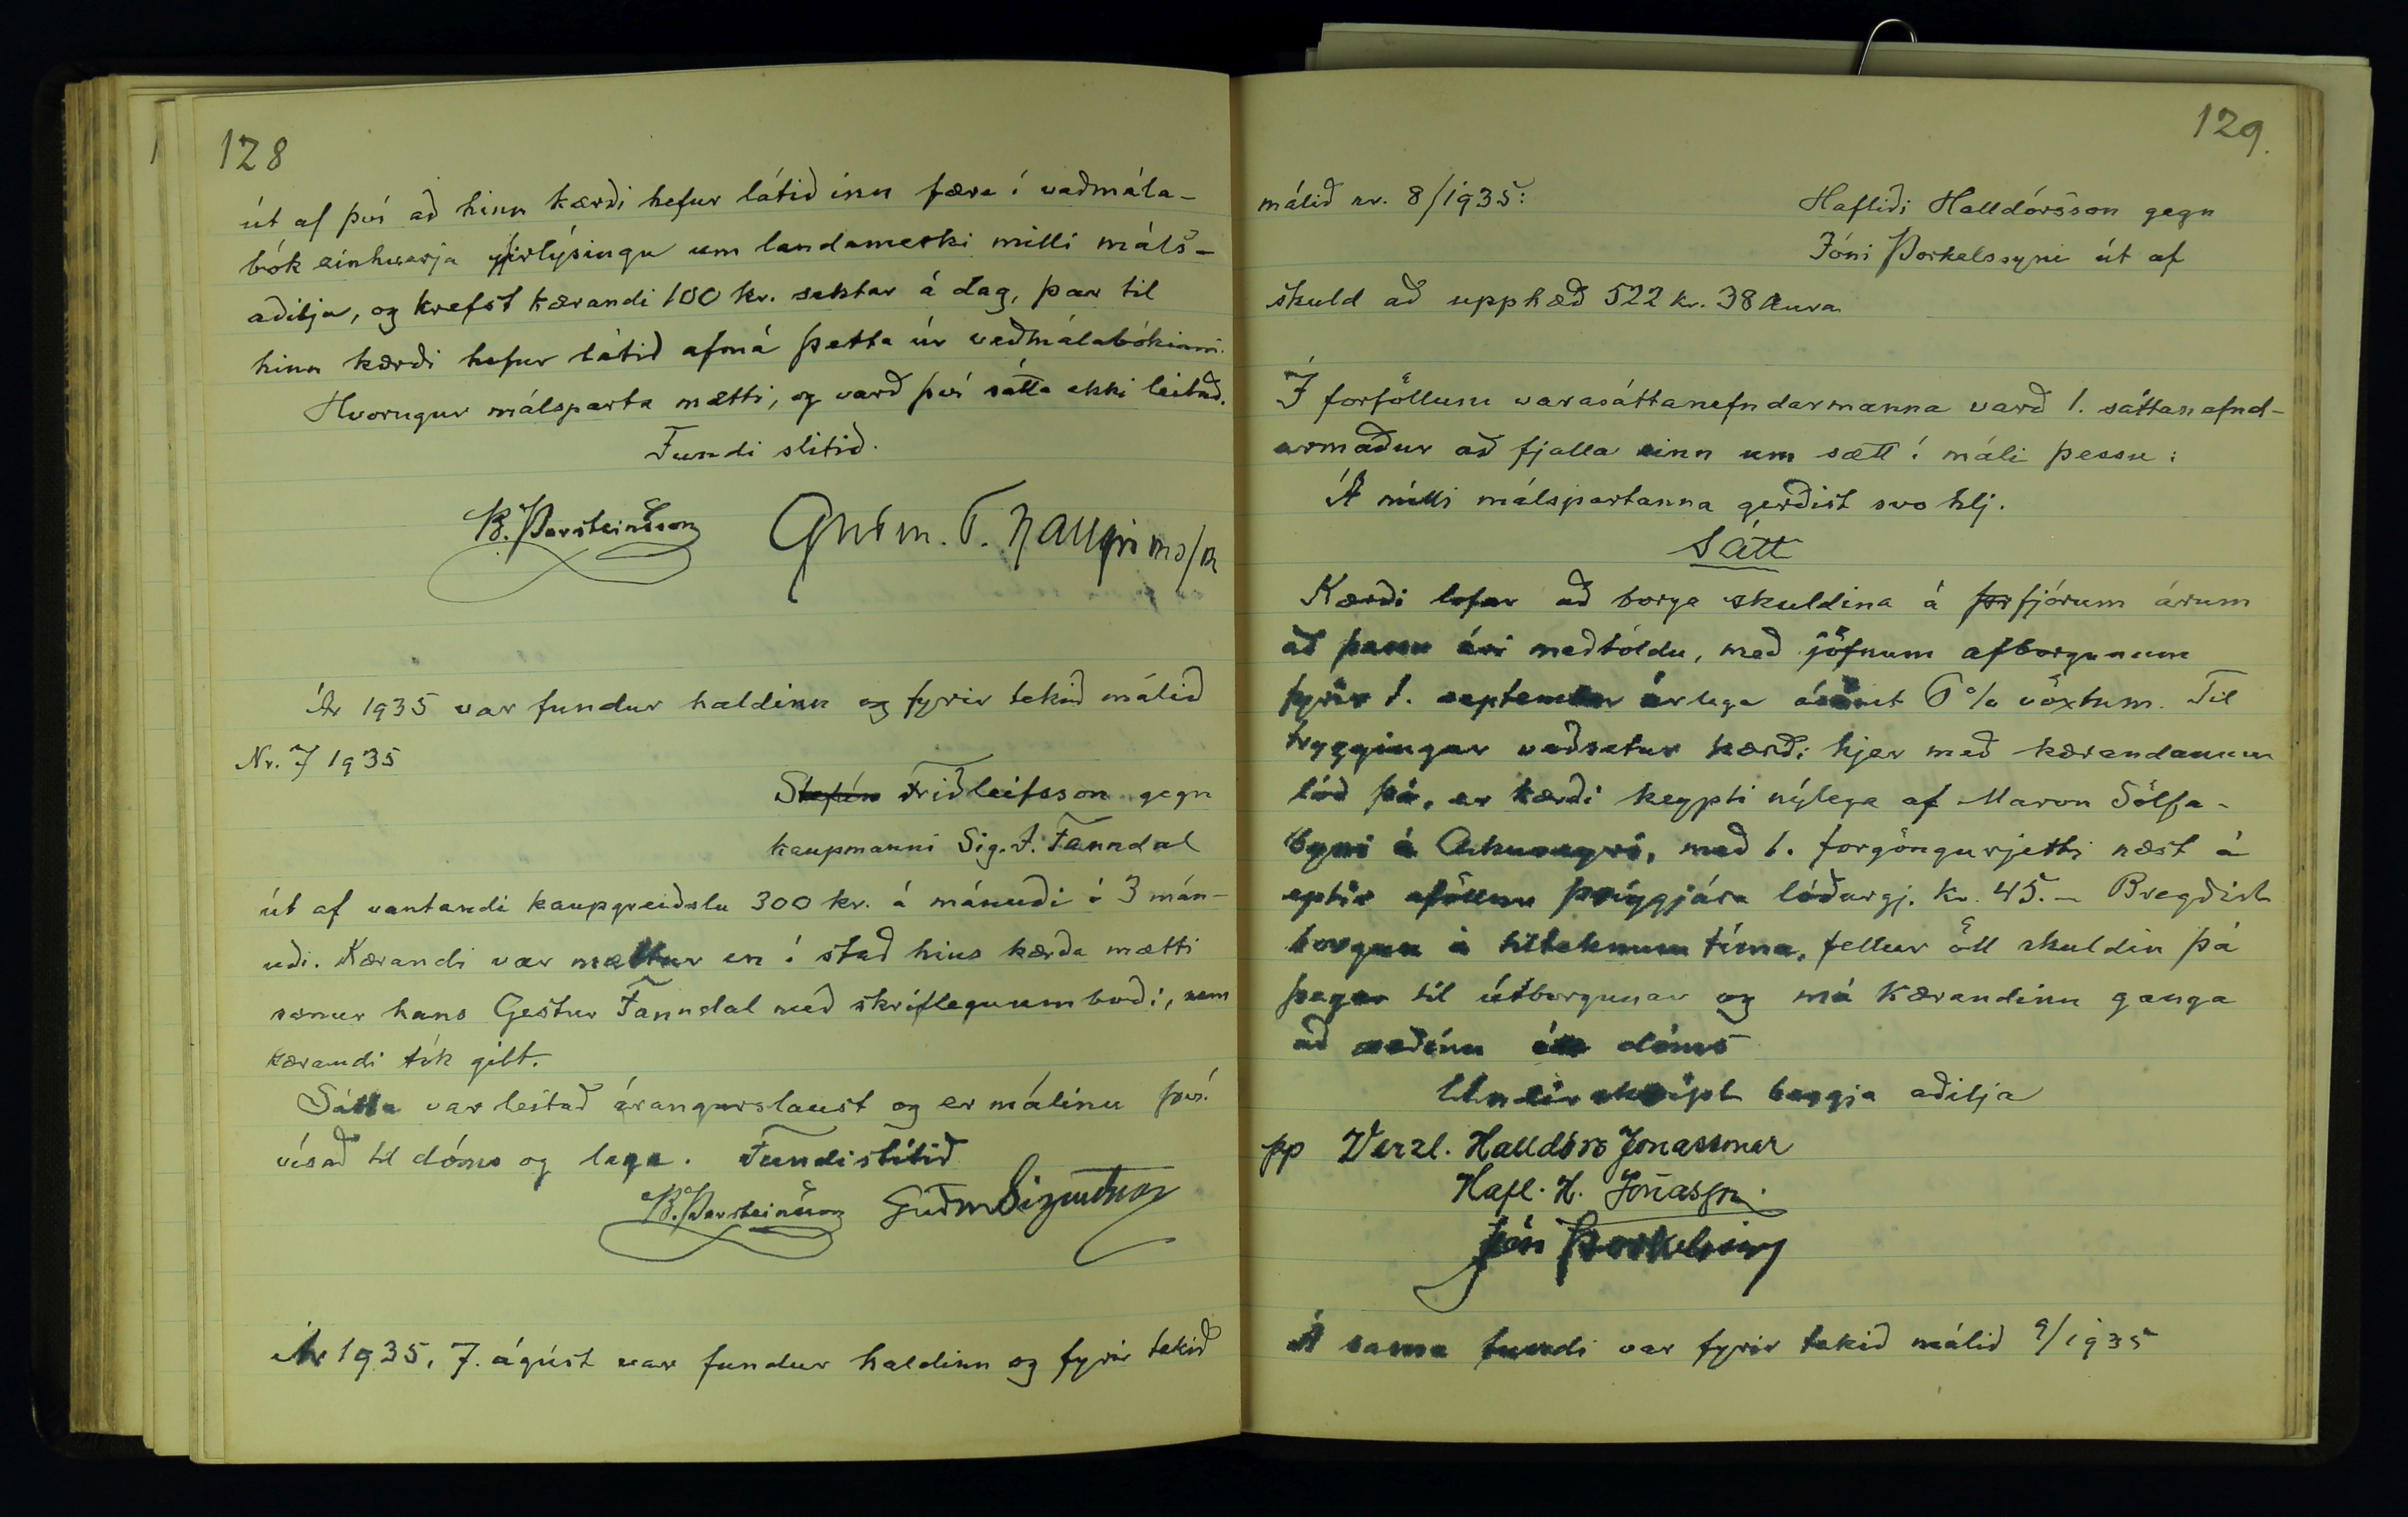 128
út af því að hinn kærði hefur látið inn færa í veðmála-
bók einhverja yfirlýsingu um landamerki milli máls-
aðilja, og krefst kærandi 100 kr. sektar á dag, þar til
hinn kærði hefur látið afmá þetta úr veðmálabókinni.
Hvorugur málsparta mætti, og varð því sátta ekki leitað.
Fundi slitið.
B. Þorsteinsson Guðm. T. Hallgrímss/n
Ár 1935 var fundur haldinn og fyrir tekið málið
Nr. 7 1935
Stefán Friðleifsson gegn
kaupmanni Sig. J. Fanndal
út af vantandi kaupgreiðslu 300 kr. á mánuði í 3 mán-
uði. Kærandi var mættur en í stað hins kærða mætti
sonur hans Gestur Fanndal með skriflegu umboði, sem
kærandi tók gilt.
Sátta var leitað árangurslaust og er málinu því
vísað til dóms og laga. Fundi slitið
B. Þorsteinsson
Ár 1935, 7. ágúst var fundur haldinn og fyrir tekið
129.
málið nr. 8/1935:
Hafliði Halldórsson gegn
Jóni Þorkelssyni út af
skuld að upphæð 522 kr. 38 aura
Í forföllum varasáttanefndarmanna varð 1. sáttanefnd-
armaður að fjalla einn um sætt í máli þessu:
Á milli málspartanna gerðist svo hlj.
Sátt
Kærði lofar að borga skuldina á for fjórum árum
að þessu ári meðtöldu, með jöfnum afborgunum
fyrir 1. september árlega ásamt 6% vöxtum. Til
tryggingar veðsetur kærði hjer með kærandanum
lóð þá, er kærði keypti nýlega af Maron Sölfa-
syni á með 1. forgöngurjetti næst á
eptir lóðargj. kr. 45.- Bregðist
borgun á tilteknum tíma, fellur öll skuldin þá
þegar til útborgunar og má kærandinn ganga
að veðinu án dóms
Undirskript beggja aðilja
pp Verzl. Halldórs Jónassonar
Hafl. H. Jónasson
Jón Þorkelsson
Á sama fundi var fyrir tekið málið 9/1935